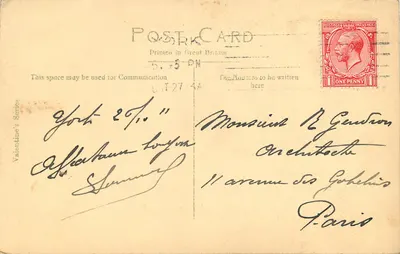 POST CARD
YORK
Printed in Great Britain
5. 5 PM
This space may be used for Communication
The Address to be written
here
OCT 27
ONE PENNY
Valentine's Series
York
Monsieur R Gendron
Architecte
11 avenue des Gobelins
Paris